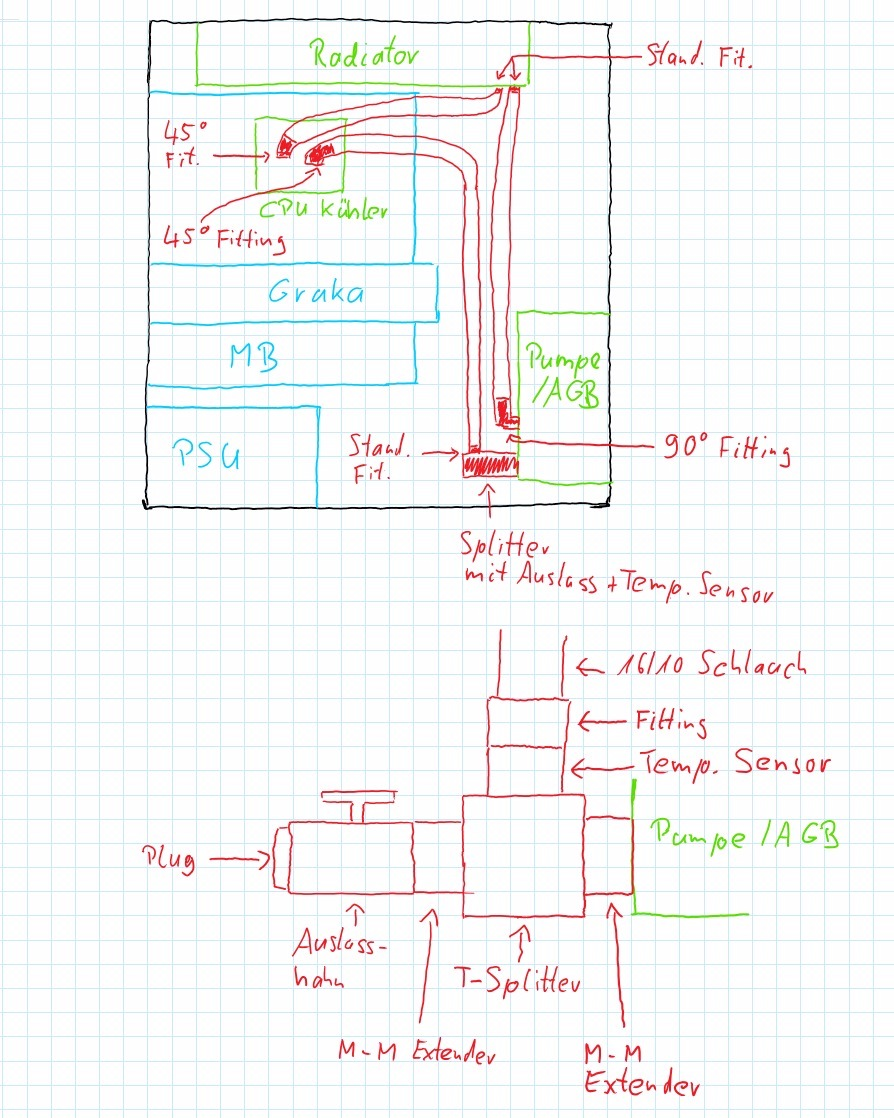 Radiator
Stand. Fit.
45°
Fit.
CPU Kühler
45° Fitting
Graka
MB
Pumpe
/AGB
PSU
Stand.
Fit.
90° Fitting
Splitter
mit Auslass + Temp. Sensor
16/10 Schlauch
Fitting
Temp. Sensor
Pumpe /AGB
Plug
Auslass-
hahn
T-Splitter
M-M Extender
M-M
Extender